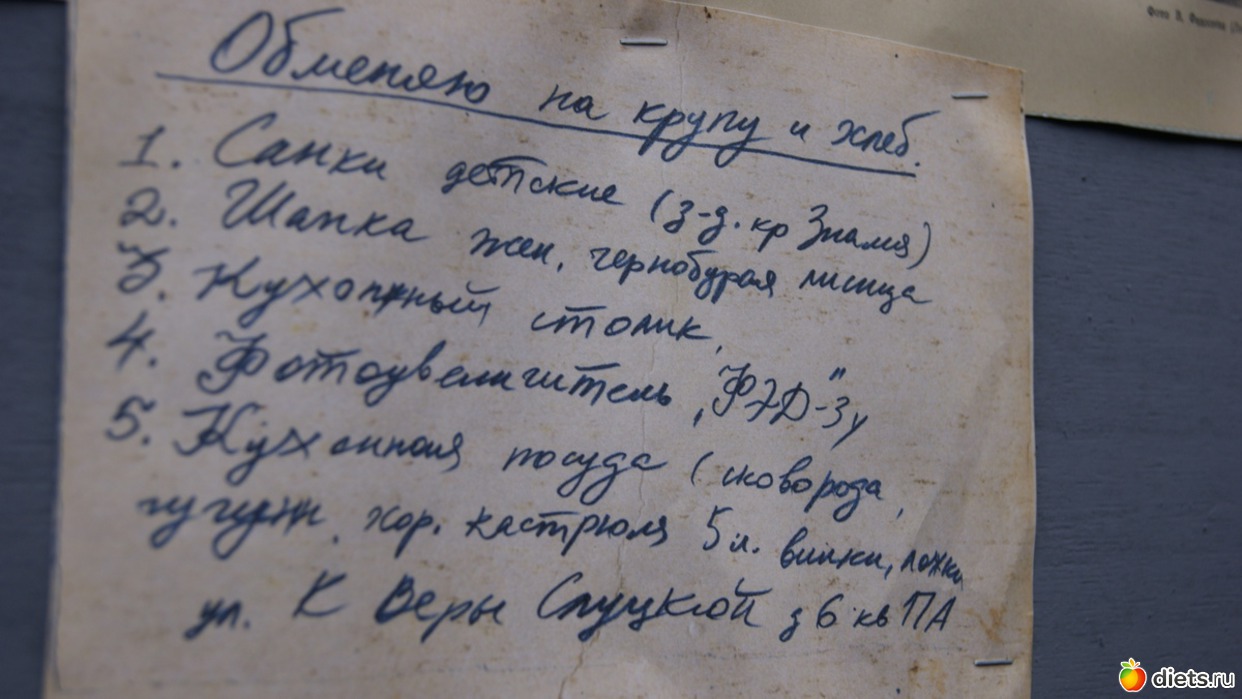 Фото В. Федосеева
Обменяю на крупу и хлеб.
1. Санки детские (з-д. кр Знамя)
2. Шапка жен, чернобурая лисица
3. Кухонный столик,
4. Фотоувеличитель „ФЭД"-3у
5. Кухонная посуда (сковорода,
чугун, хор. кастрюля 5л. вилки, ложки
ул. К Веры Слуцкой д 6 кв ПА
diets.ru